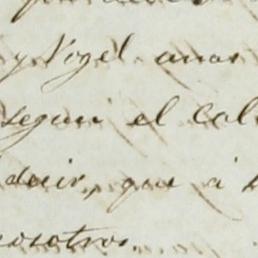 y Vogel unas
segun el cal
decir, que á
nosotros.